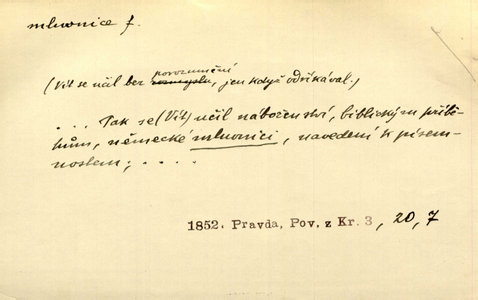 mluvnice f.
(Vít se učil bez rozmyslu porozumění, jen když odříkával.)
. . . Tak se (Vít) učil náboženství, biblickým příbě-
hům, německé mluvnici, navedení k písem-
nostem; . . . .
1852. Pravda, Pov. z Kr. 3, 20, 7